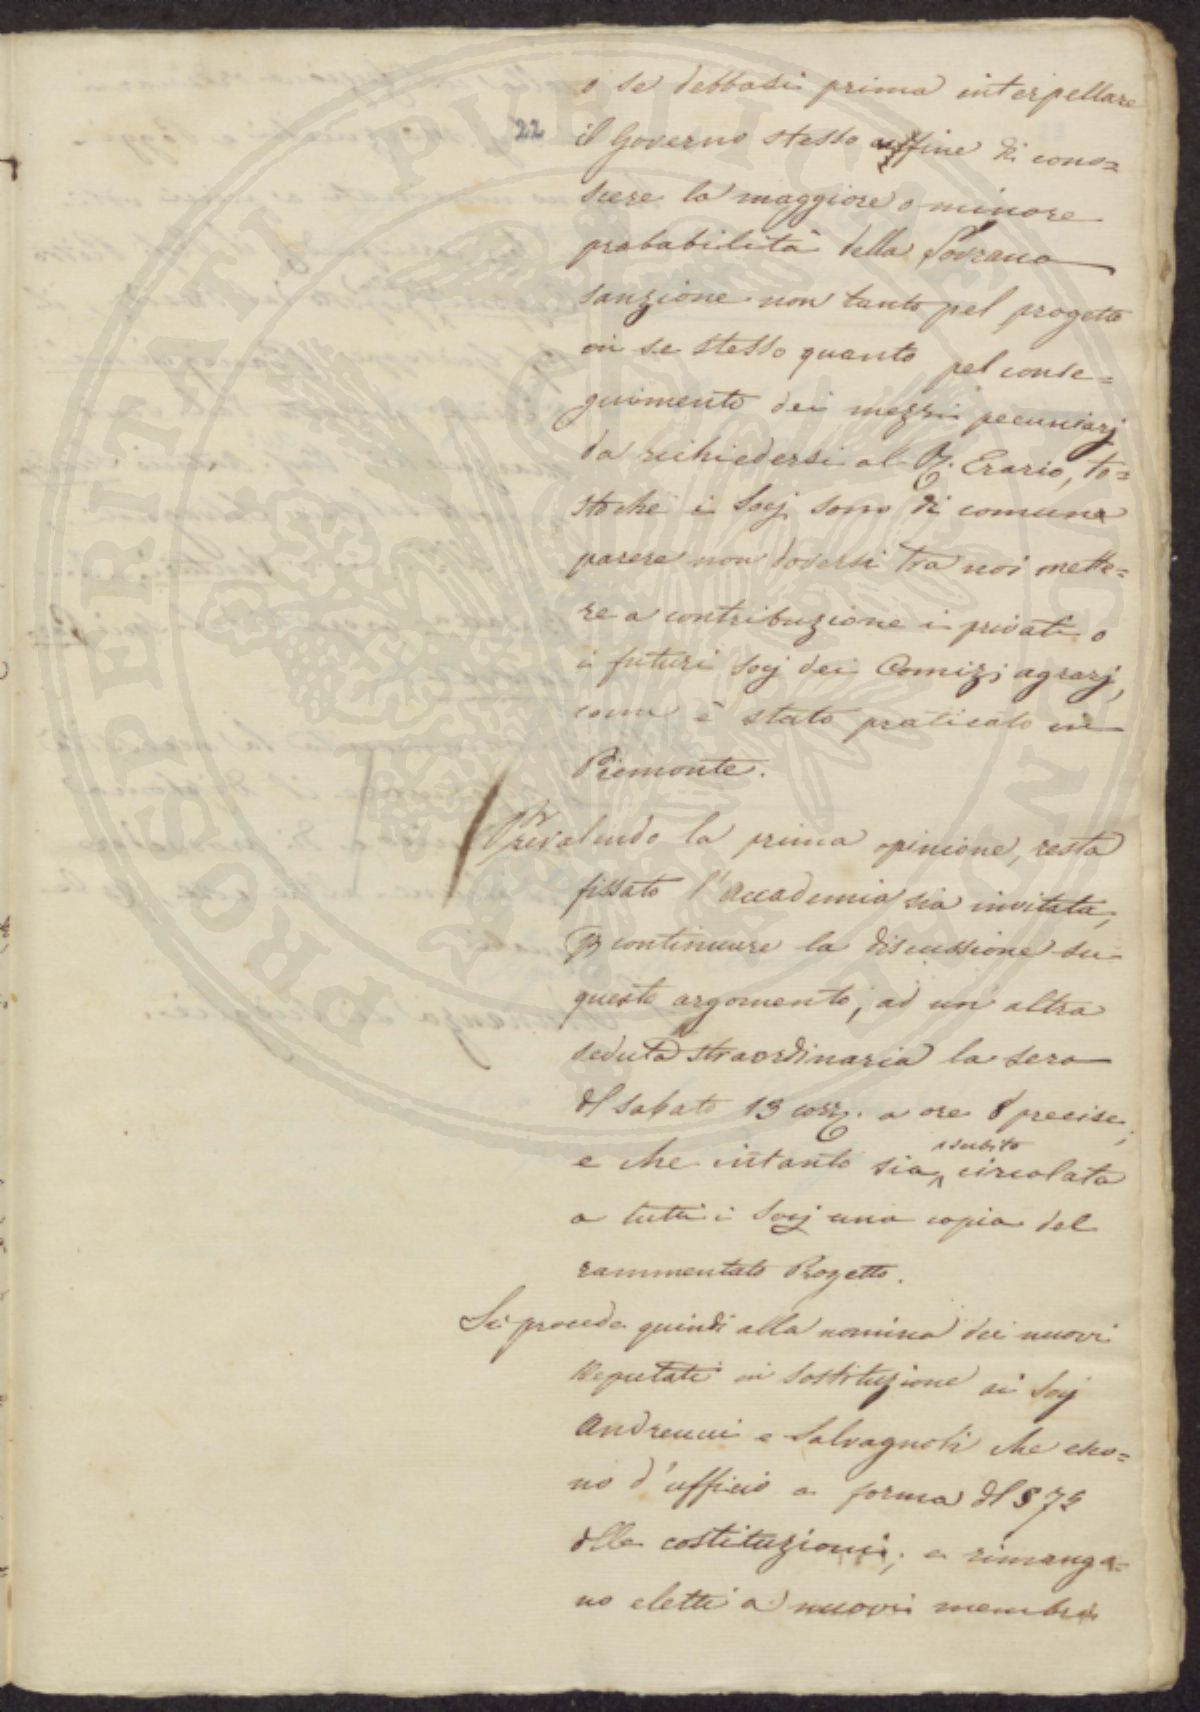 22
o se debbasi prima interpellare
il Governo stesso affine di cono=
scere la maggiore o minore
probabilità della Sovrana
sanzione non tanto pel progetto
in se stesso quanto pel conse=
guimento dei mezzi pecuniarj
da richiedersi al R. Erario, to=
stochè i Socj sono di comune
parere non doversi tra noi mette=
re a contribuzione i privati o
i futuri Socj dei Comizj agrarj,
come è stato praticato in
Piemonte.
Prevalendo la prima opinione, resta
fissato l'Accademia sia invitata,
p continuare la discussione su
questo argomento, ad un' altra
seduta straordinaria la sera
del sabato 13 corr. a ore 8 precise,
e che intanto sia subito circolata
a tutti i Socj una copia del
rammentato Progetto.
Si procede quindi alla nomina dei nuovi
Deputati in sostituzione ai Socj
Andreucci e Salvagnoli che esco=
no d'ufficio a forma del § 75
delle costituzioni; e rimanga=
no eletti a nuovi membri
PROSPERITATI PUBLICAE AUGENDAE